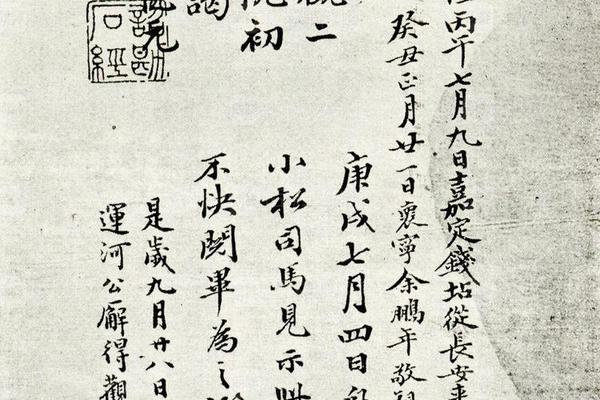 丙午七月九日嘉定錢坫從長安來
癸丑正月廿一日褱寧余鵬年敬觀
二
初
謁
阮元
詔勘石經
庚戌七月四日
小松司馬見示
不快閱畢為之
是歲九月廿八日
運河公廨得觀